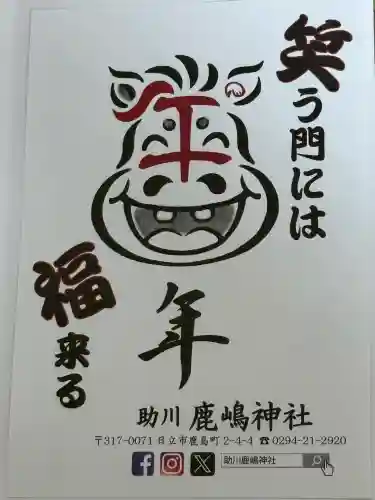 笑う門には
福来る
午
年
助川 鹿嶋神社
〒317-0071 日立市鹿島町 2-4-4 ☎ 0294-21-2920
助川鹿嶋神社